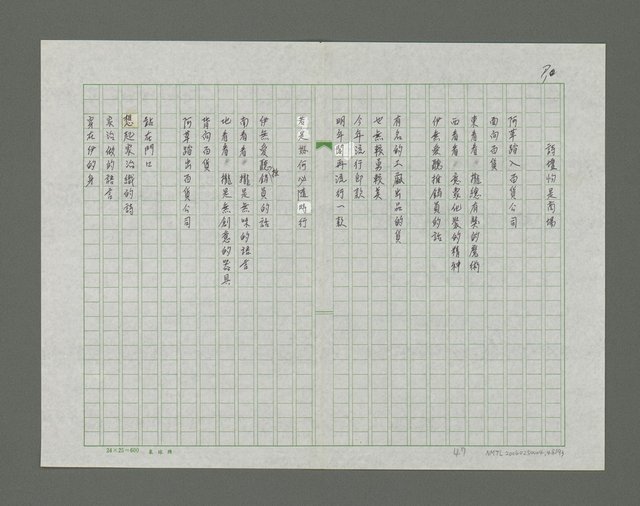 詩壇均是商場
阿草踏入百貨公司
面向百貨
東看看，攏總有獎的魔術
西看看，家家化裝的精神
伊無愛聽推銷員的話
有名的工廠出品的貨
也無較勇較美
今年流行即款
明年閣再流行一款
若是如何必隨時行
伊無愛聽推銷員的話
南看看，攏是無味的語言
北看看，攏是無創意的器具
背向百貨
阿草踏出百貨公司
站在門口
想起家治織的詩
家治做的語言
實在伊的身
24×25=600
47
NMTL